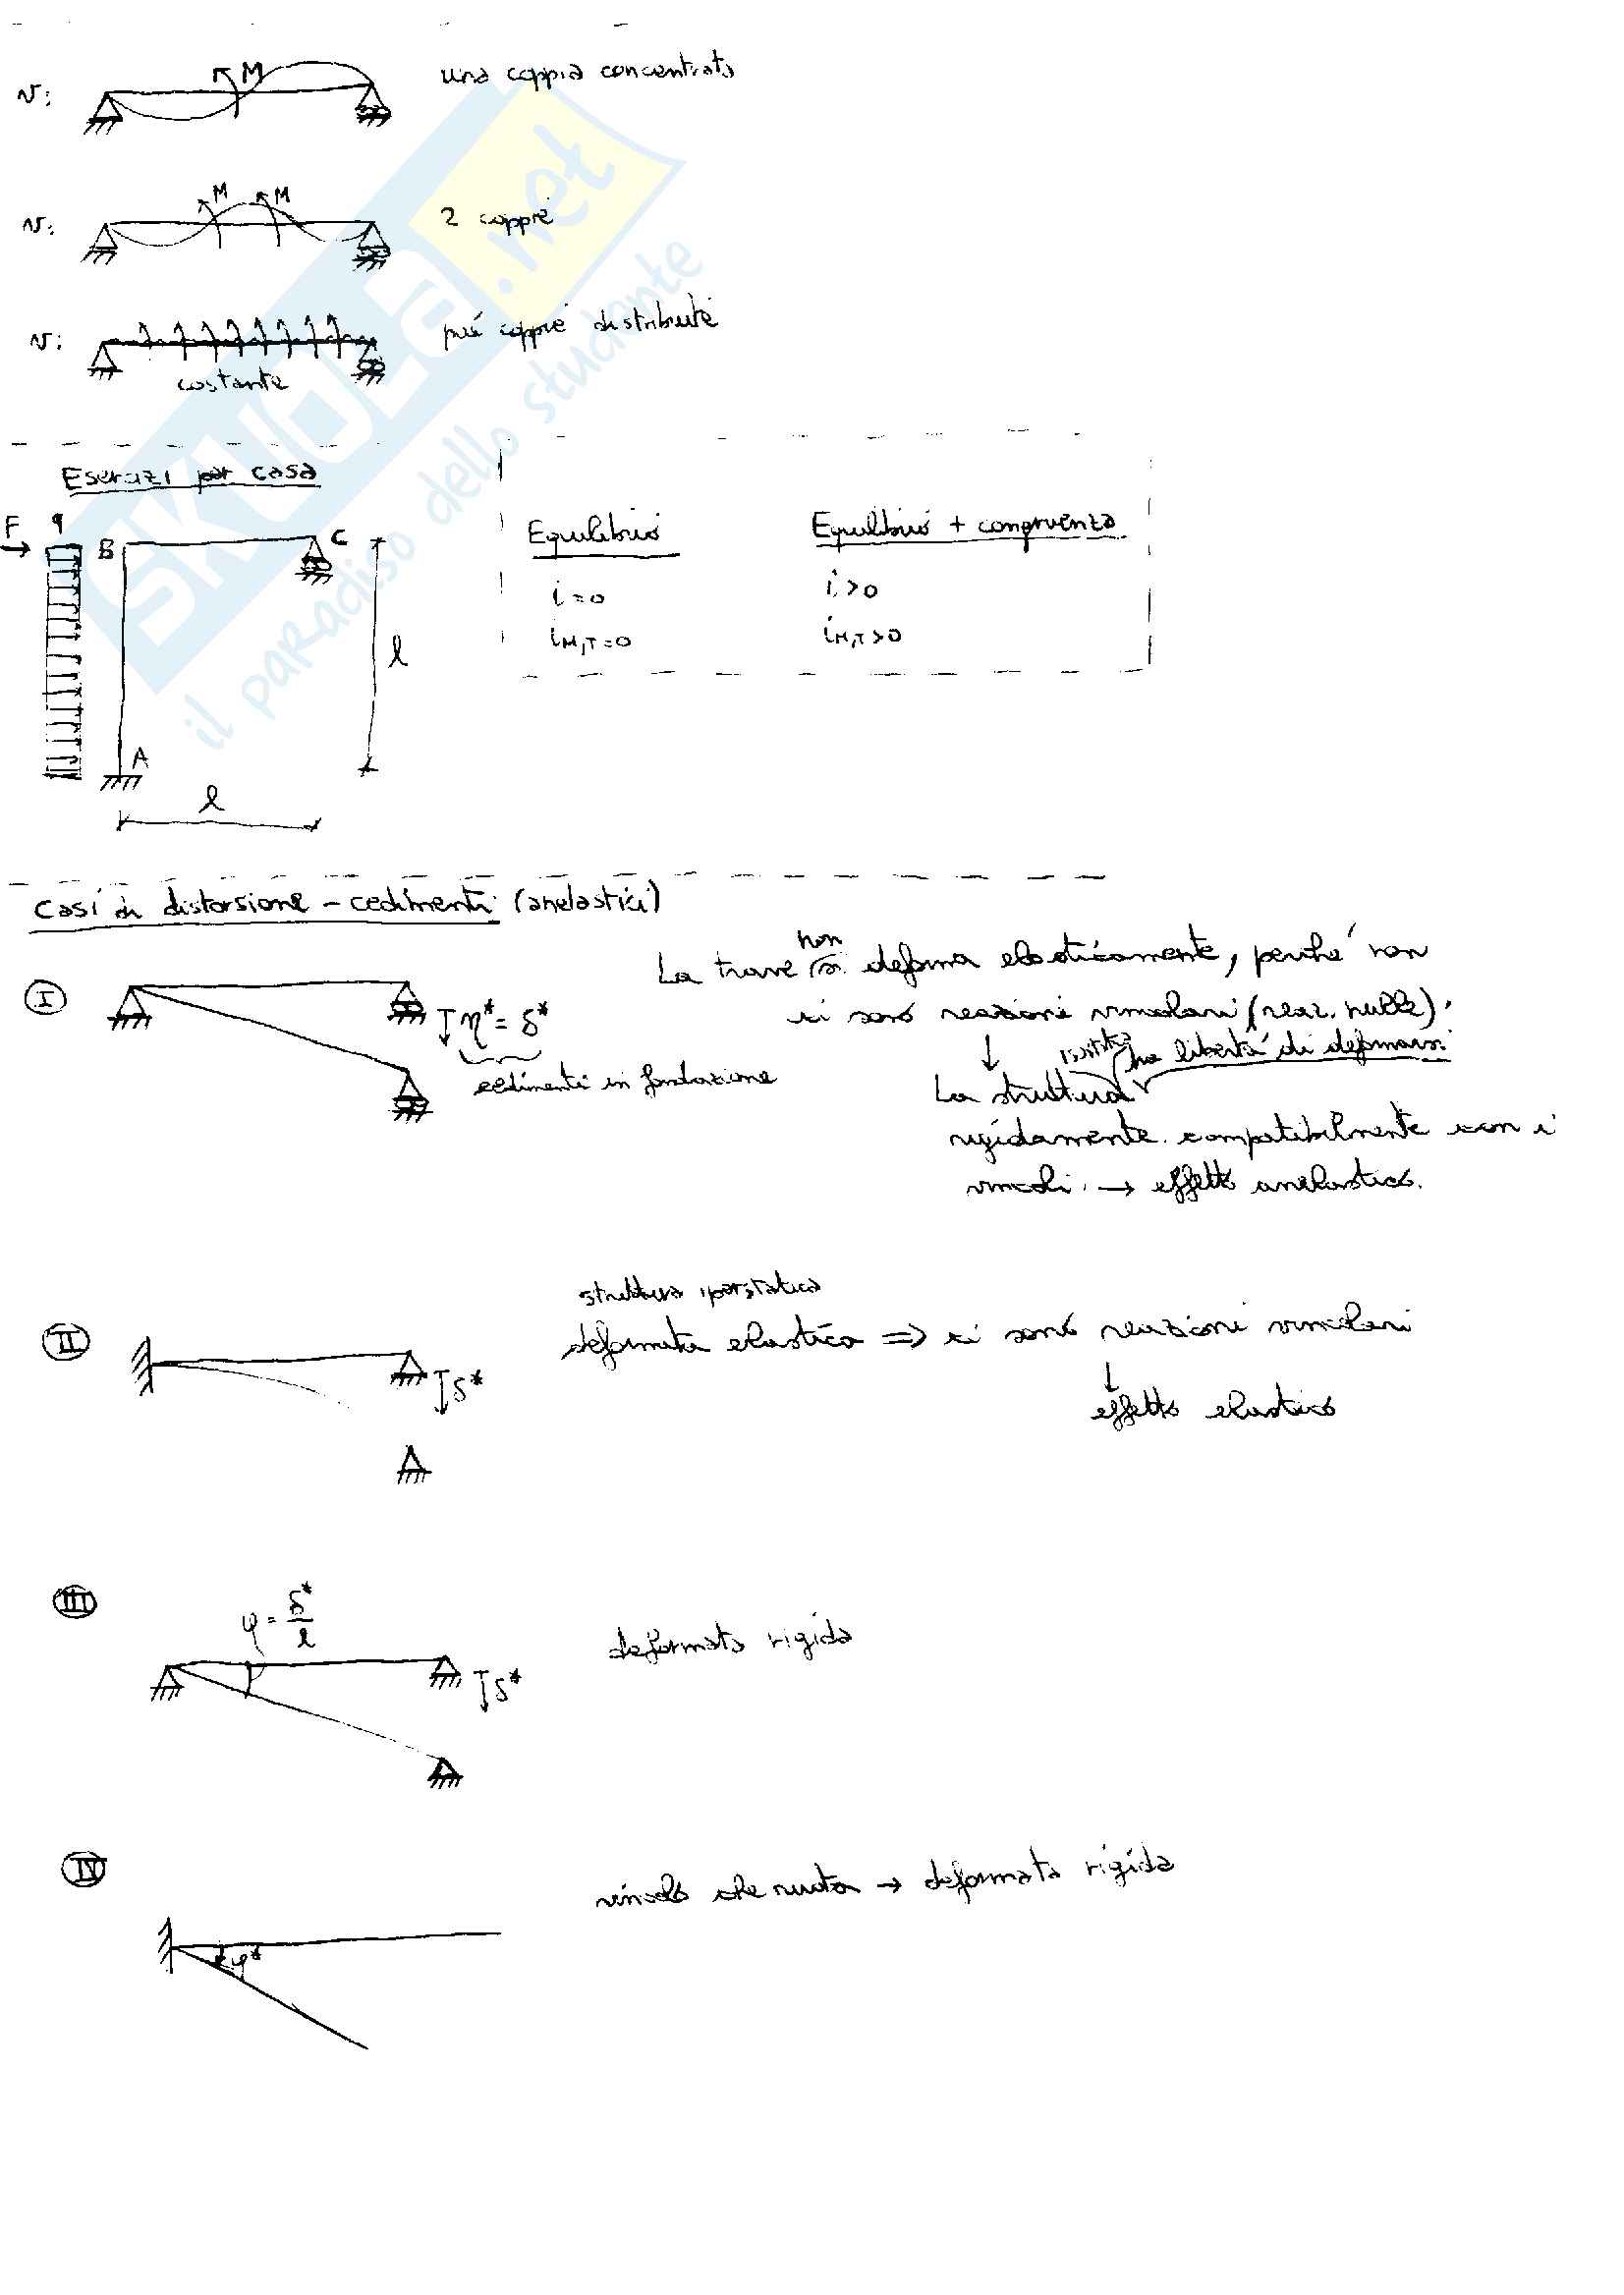 v: M una coppia concentrata
v: M M 2 coppie
v: più coppie distribuite
costante
Esercizi per casa
F q B C
l
A
l
Equilibrio Equilibrio + congruenza
i=0 i>0
iM,T=0 iM,T>0
Casi di distorsione - cedimenti (anelastici)
I
η* = δ*
cedimenti in fondazione
La trave non si deforma elasticamente, perché non
ci sono reazioni vincolari (reaz. nulle).
↓
La struttura isostatica ha libertà di deformarsi
rigidamente compatibilmente con i
vincoli. → effetto anelastico.
II
δ*
struttura iperstatica
deformata elastica => ci sono reazioni vincolari
↓
effetto elastico
III
φ = δ*/l
δ*
deformata rigida
IV
φ*
vincolo che ruota → deformata rigida
SKUOLA.net
il paradiso dello studente